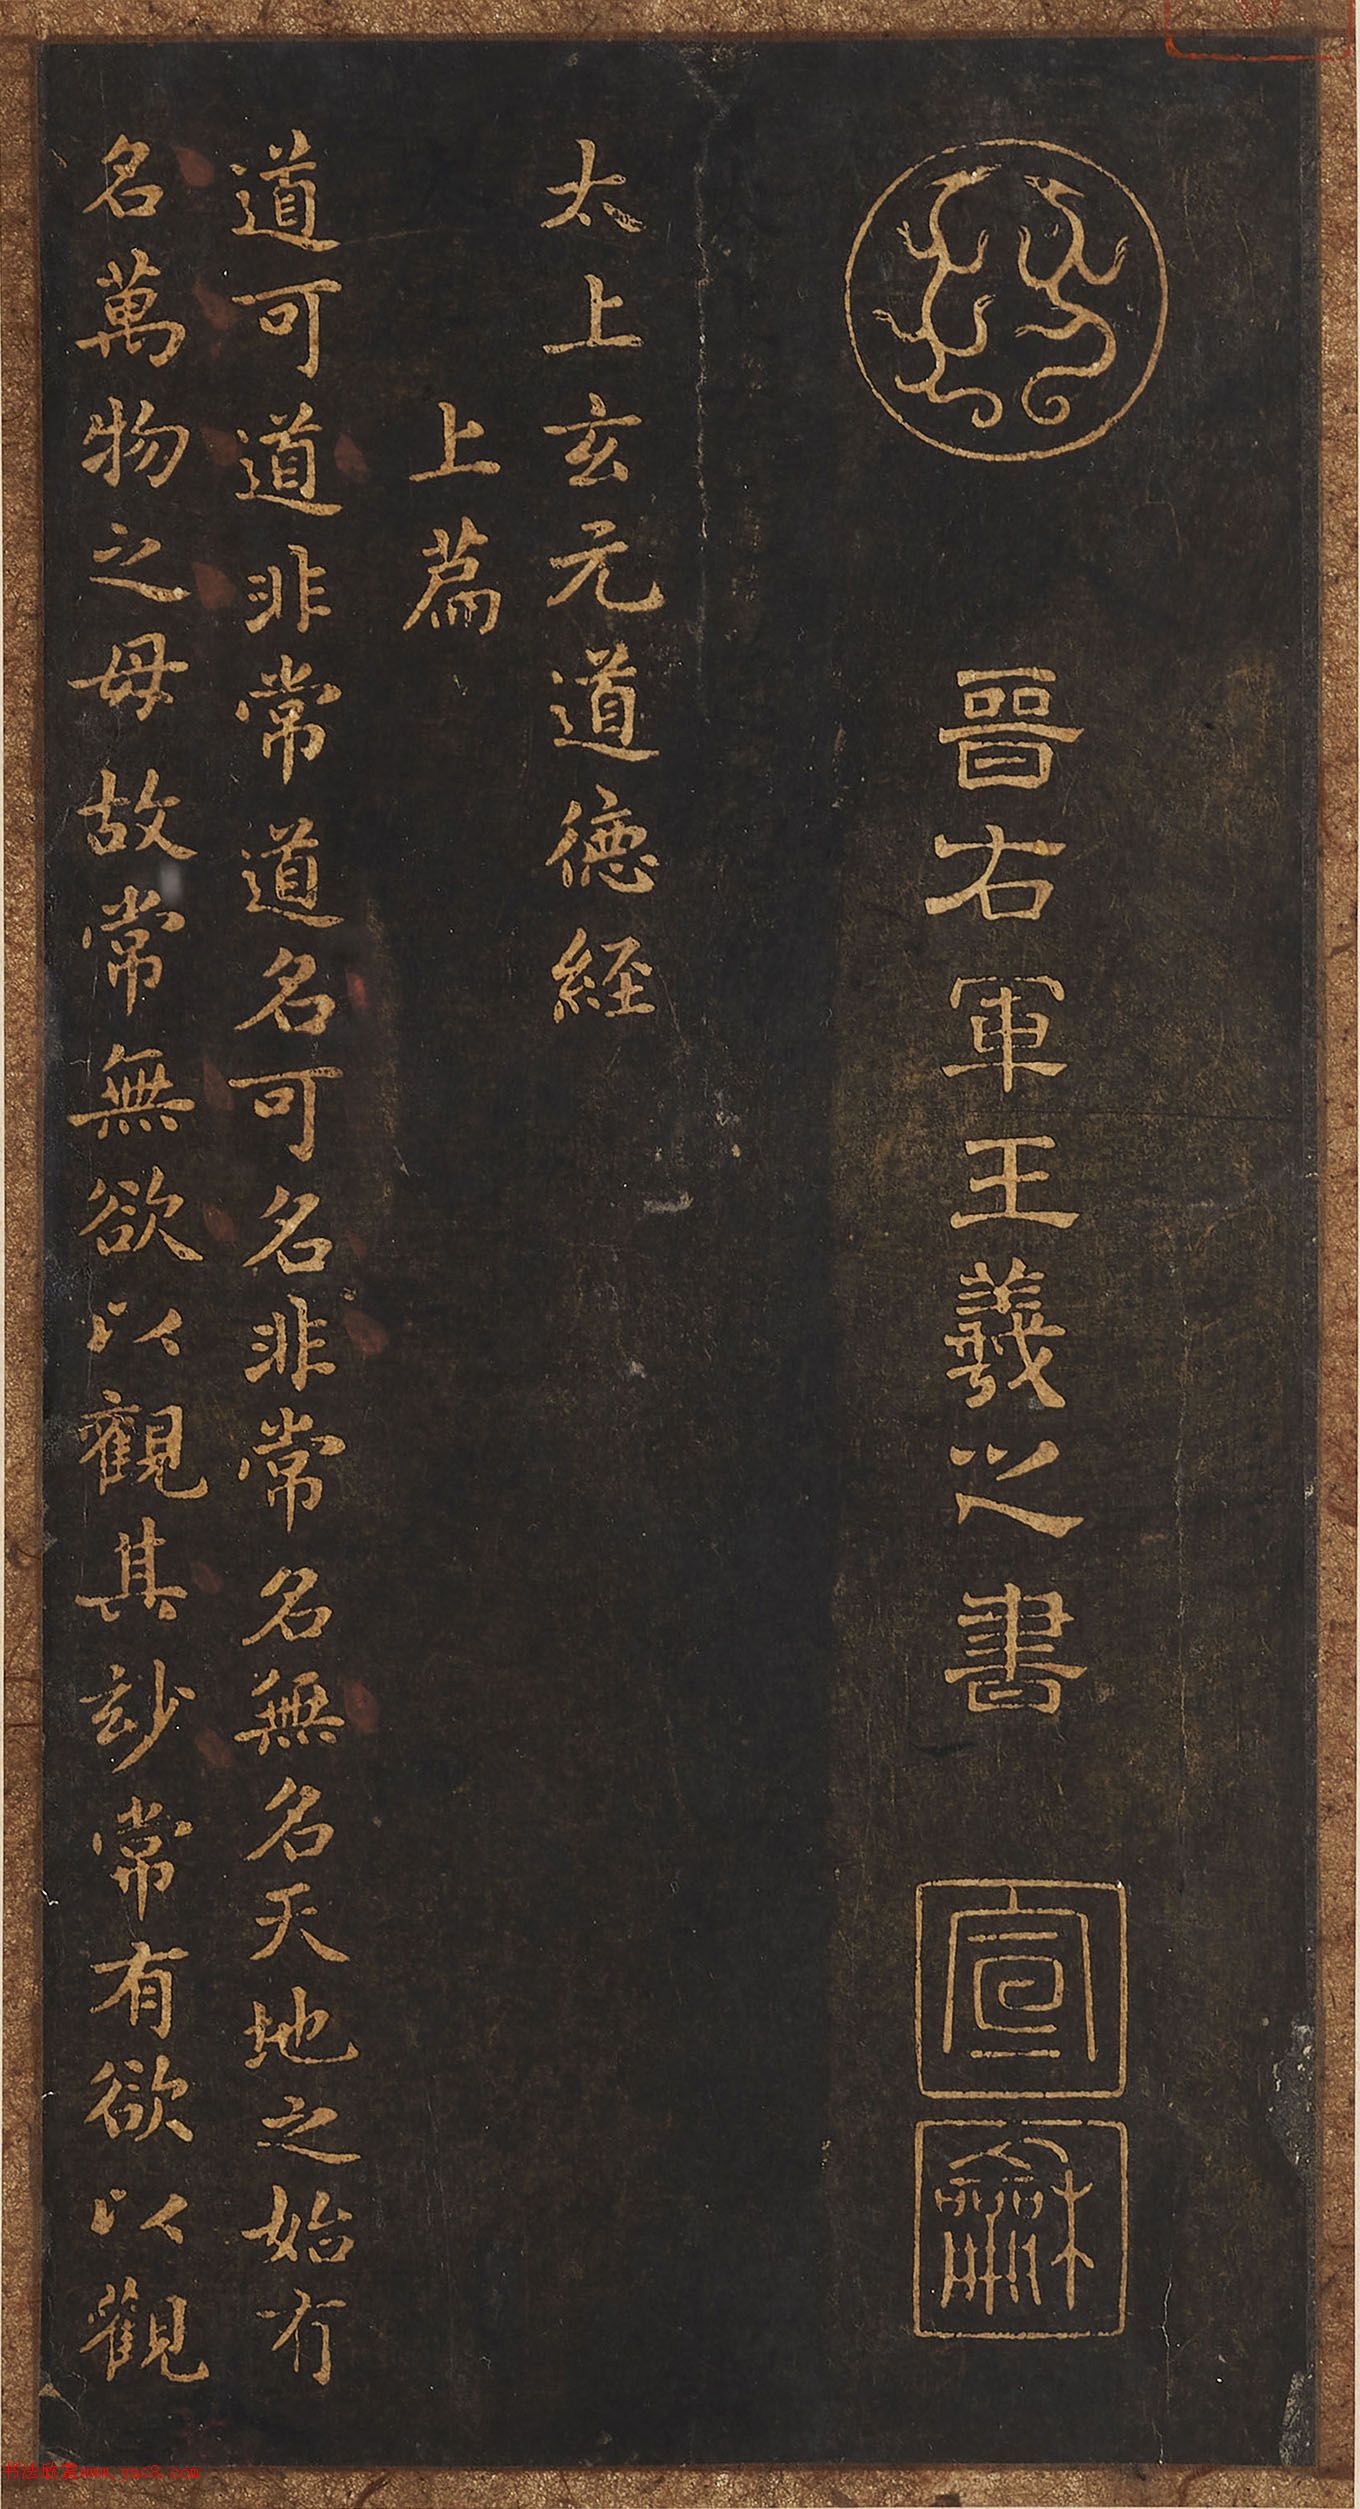 晉右軍王羲之書
宣
龢
太上玄元道德経
上篇
道可道非常道名可名非常名無名天地之始有
名萬物之母故常無欲以觀其玅常有欲以觀
书法欣赏www.yac8.com